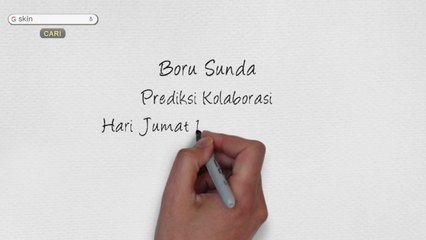 G skin
CARI
Boru Sunda
Prediksi Kolaborasi
Hari Jumat 1